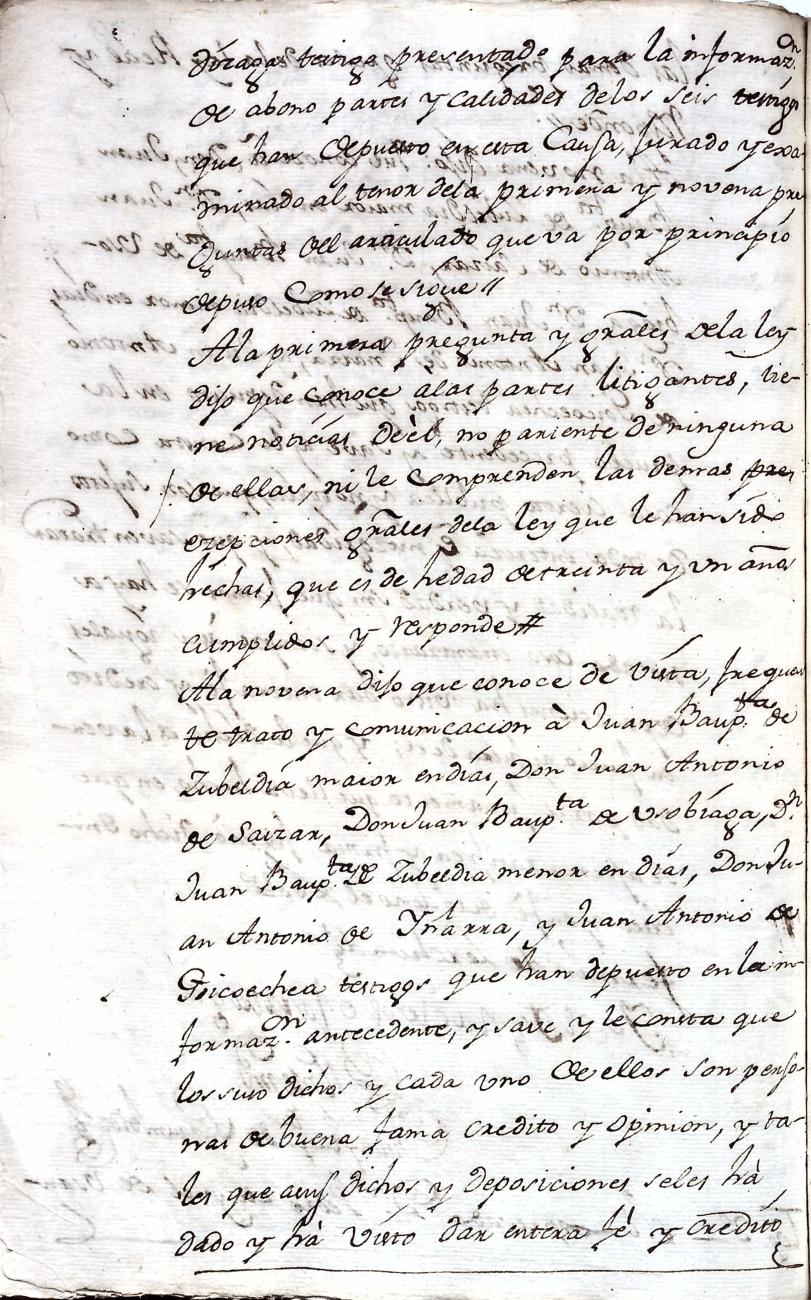 dizaga testigo presentado para la informaz.on
de abono partes y calidades delos seis testigos
que han depuesto en esta Causa, Jurado y exa-
minado al tenor dela primera y novena pre
guntas del articulado que va por principio
depuso Como se sigue//
Ala primera pregunta y grãles dela ley
dijo que conoce alas partes litigantes, tie-
ne noticias deèl, no pariente de ninguna
de ellas, ni le Comprenden las demas pre
ezepciones grãles dela ley que le han sido
hechas, que es de hedad de treinta y un años
cumplidos y responde#
Ala novena dijo que conoce de vista, frequen
te trato y comunicacion à Juan Baup.ta de
Zubeldia maior en dias, Don Juan Antonio
de Saizar, Don Juan Baup.ta de Usobiaga, D.n
Juan Baup.ta de Zubeldia menor en dias, Don Ju-
an Antonio de Ybarra, y Juan Antonio de
Goicoechea testigos que han depuesto en la in-
formaz.on antecedente, y save y le consta que
los suso dichos y cada uno de ellos son perso-
nas de buena fama credito y opinion, y ta-
les que a sus dichos y deposiciones seles hà
dado y hà visto dar entera feè y credito